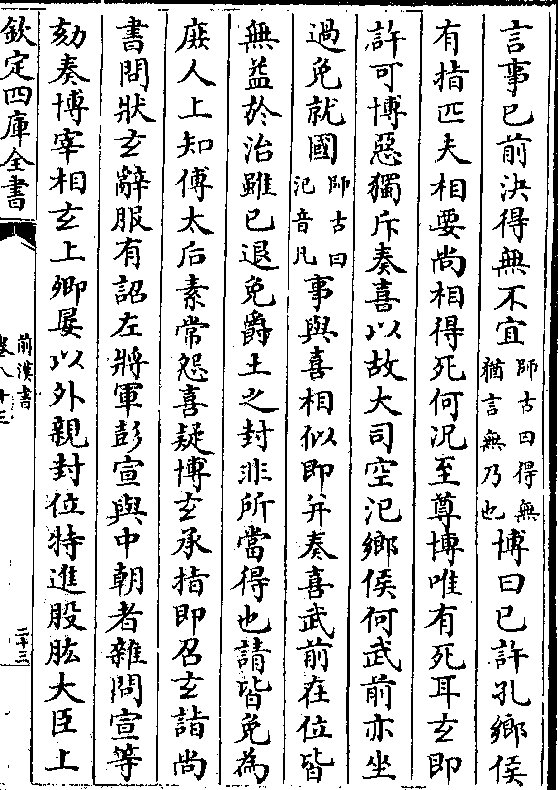 言事已前決得無不宜師古曰得無猶言無乃也博曰已許孔鄉侯
有指匹夫相要尚相得死何況至尊博唯有死耳玄即
許可博惡獨斥奏喜以故大司空氾鄉侯何武前亦坐
過免就國師古曰氾音凡事與喜相似即并奏喜武前在位皆
無益於治雖已退免爵土之封非所當得也請皆免為
庶人上知傅太后素常怨喜疑博玄承指即召玄詣尚
書問狀玄辭服有詔左將軍彭宣與中朝者雜問宣等
劾奏博宰相玄上卿晏以外親封位特進股肱大臣上
欽定四庫全書
前漢書
卷八十三
二十三